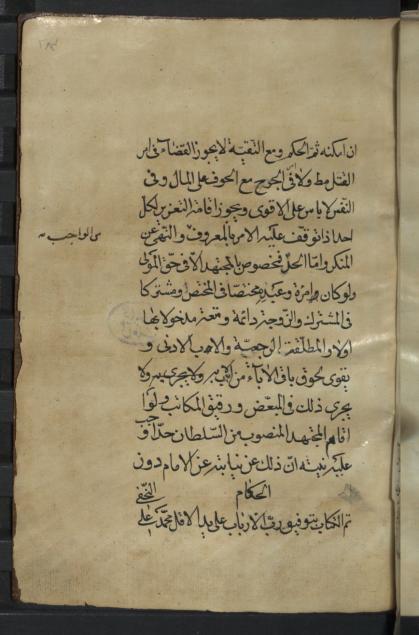 ان امكنه ثم الحكم ومع التقية لا يجوز القضاء في امر
القتل مط ولا في الجرح مع الخوف على المال وفي
النفس لا باس على الاقوى ويجوز اقامة التعزير لكل
احد اذا توقف عليه الامر بالمعروف والنهي عن
المنكر واما الحد فمخصوص بالمجتهد الا في حق المولى
ولو كان امرءة وعبده مختصا في المختص ومشتركا
في المشترك والزوجة دائمة ومتعة مدخولا بها
اولا والمطلقة الرجعية والاب الادنى و
يقوى لحوق باقي الآباء من الاب ولا يجري
يجري ذلك في المبعض ورقيق المكاتب ولو
اقام المجتهد المنصوب من السلطان حدا وجب
عليه نيته ان ذلك عن نيابته عن الامام دون
الحكام
تم الكتاب بتوفيق رب الارباب على يد الاقل محمد علي
النجفي
الواجب